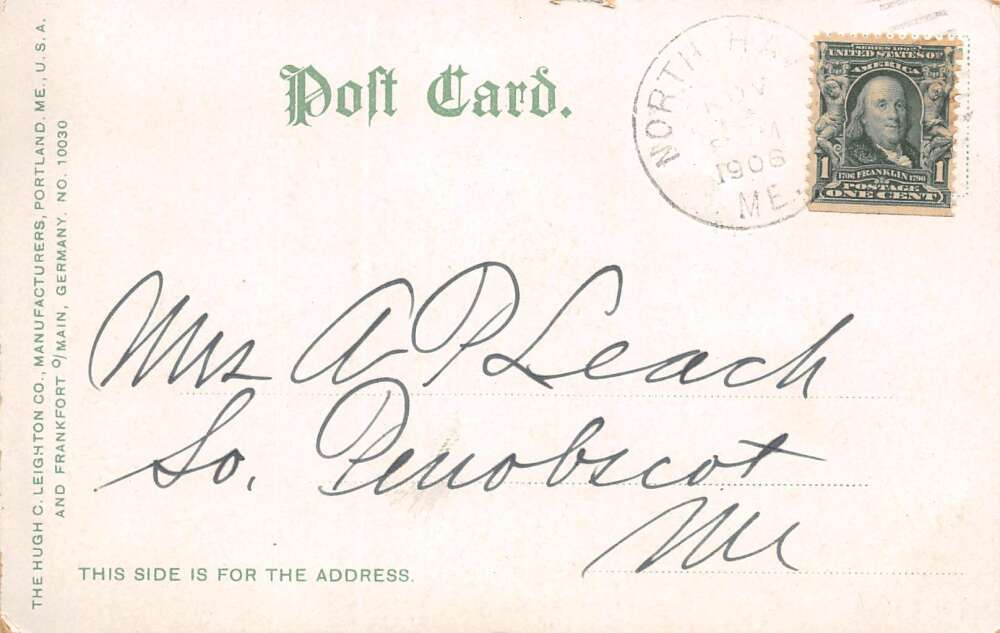 Post Card.
NORTH HA
NOV
1906
ME.
SERIES 1902
UNITED STATES OF
AMERICA
1 1
1706 FRANKLIN 1790
POSTAGE
ONE CENT
Mrs A P Leach
So. Penobscot
Me
THIS SIDE IS FOR THE ADDRESS.
THE HUGH C. LEIGHTON CO., MANUFACTURERS, PORTLAND, ME., U. S. A.
AND FRANKFORT O/MAIN, GERMANY. NO. 10030